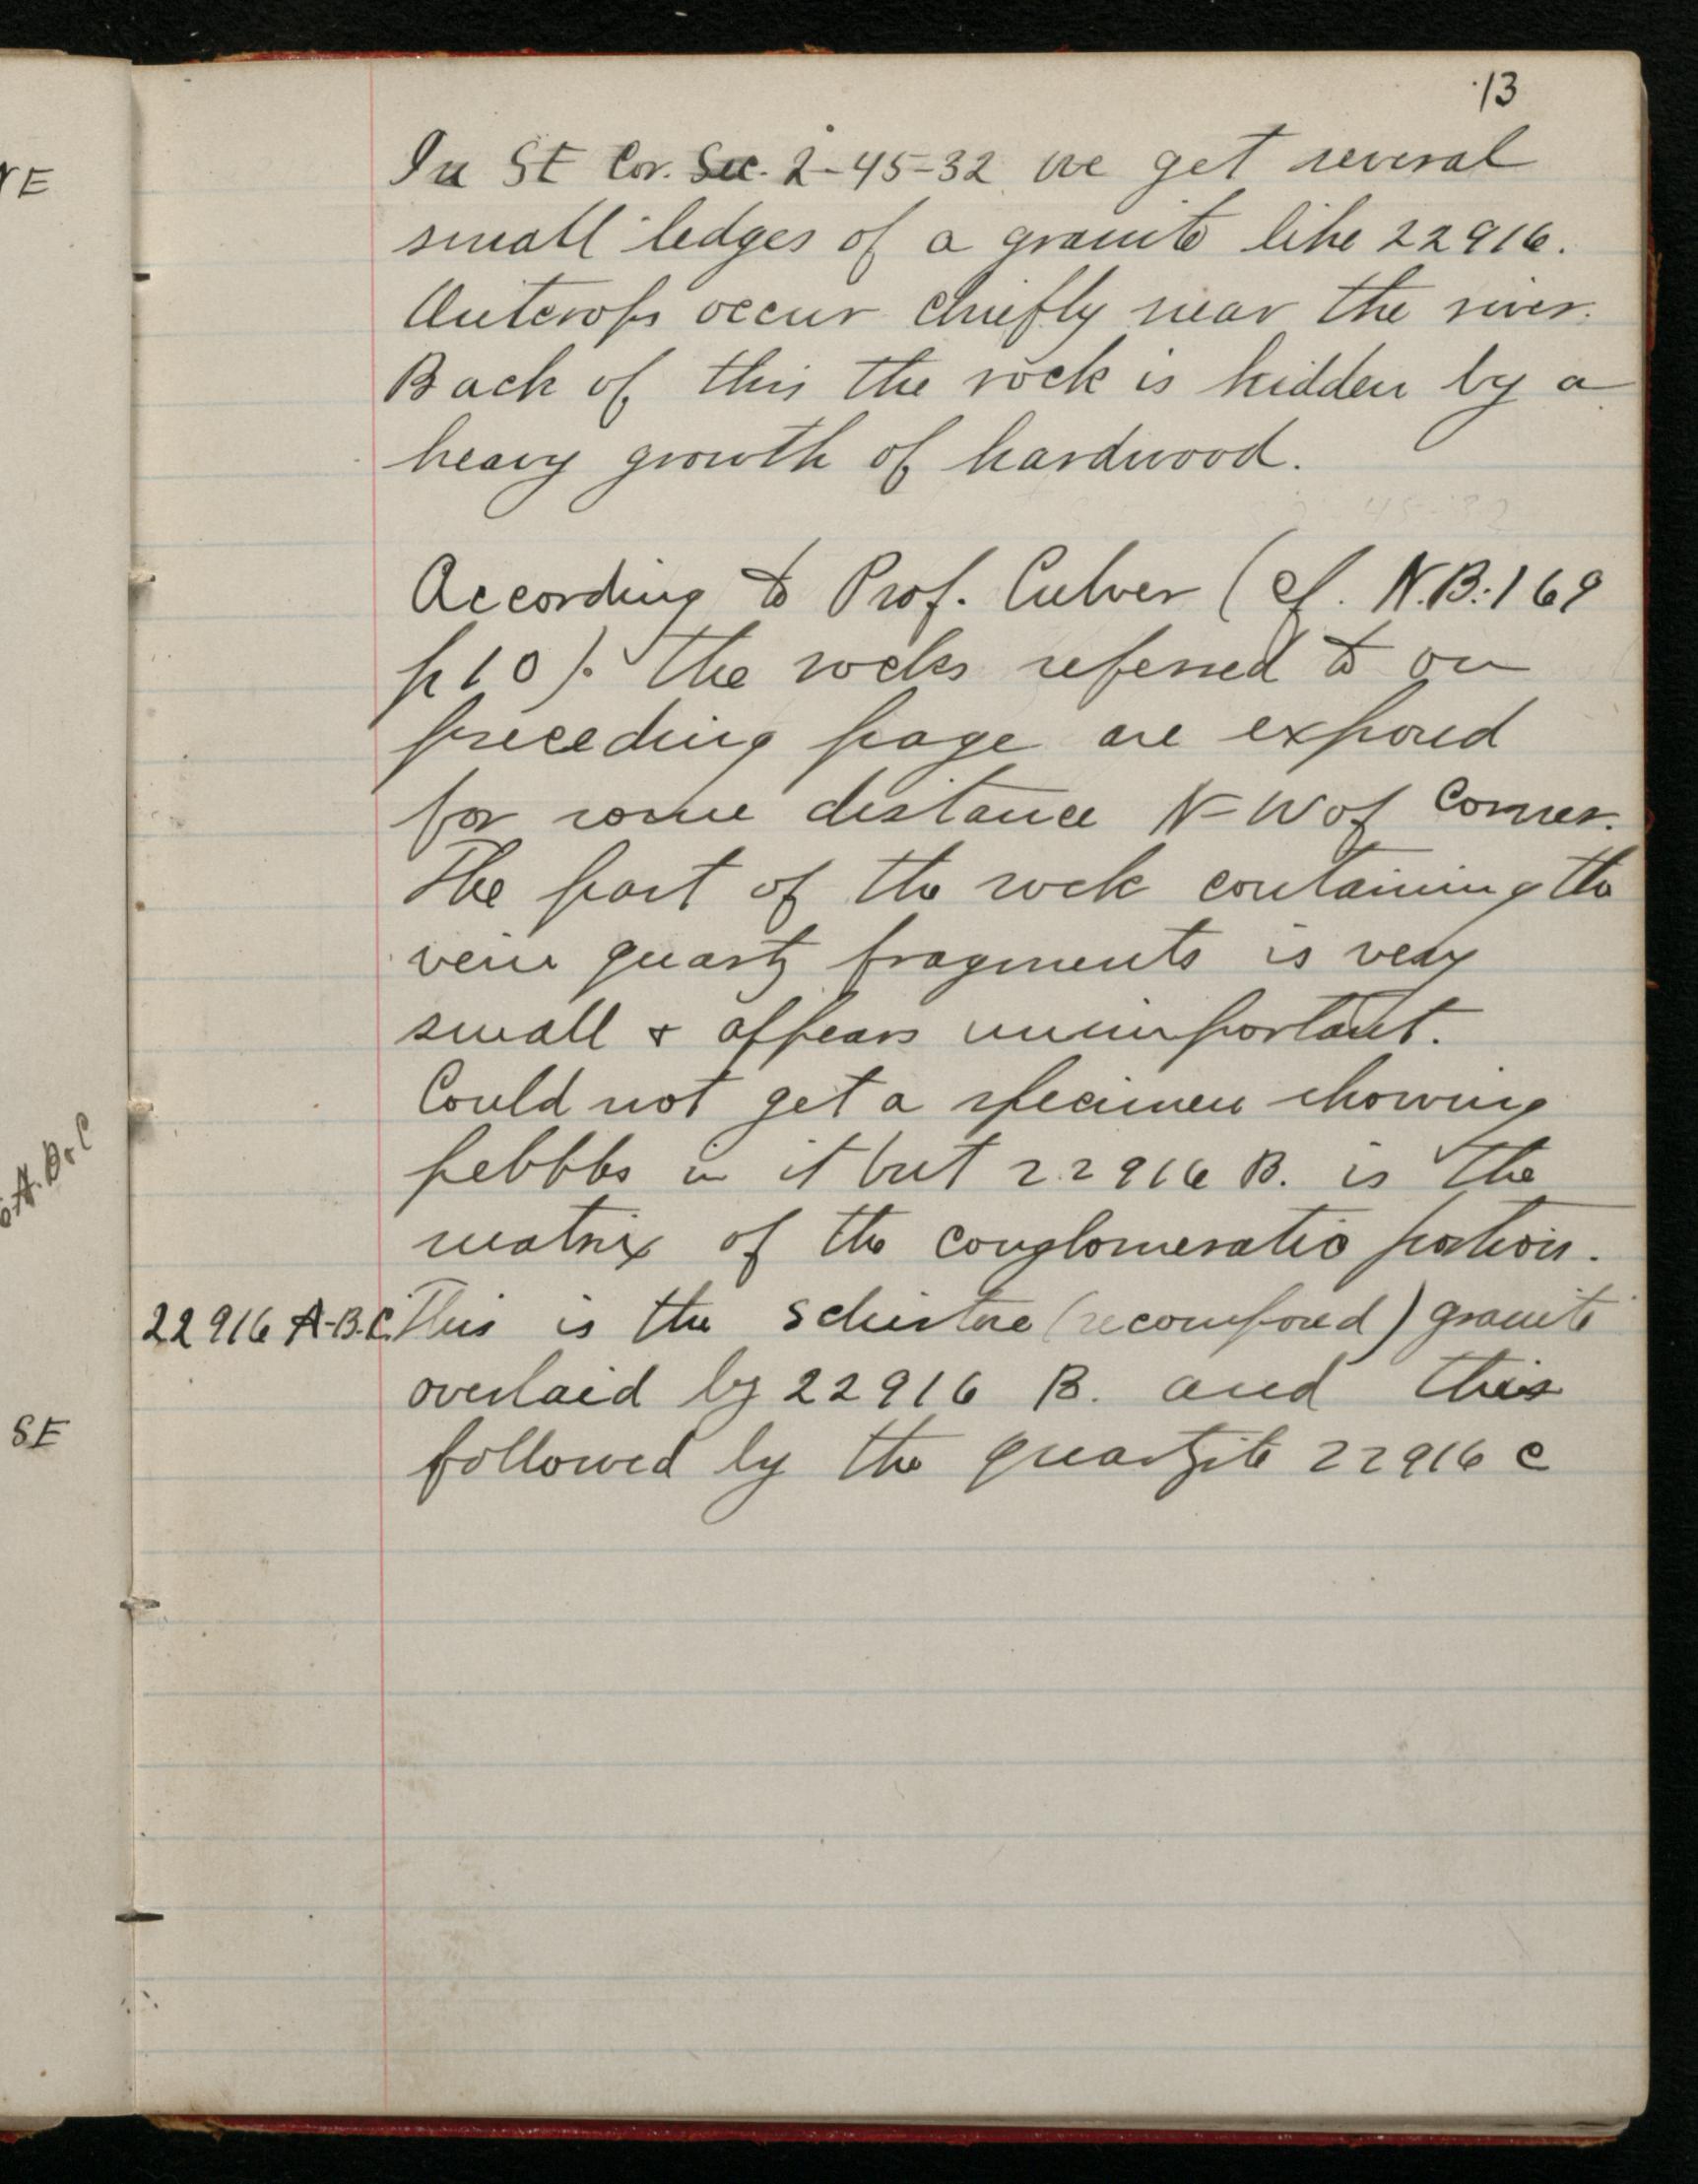 13
In SE Cor. Sec. 2-45-32 we get several
small ledges of a granite like 22916.
Outcrops occur chiefly near the river.
Back of this the rock is hidden by a
heavy growth of hardwood.
According to Prof. Culver (cf. N.B. 169
p 10). The rocks referred to on
preceding page are exposed
for some distance N-W of Corner.
The part of the rock containing the
vein quartz fragments is very
small & appears unimportant.
Could not get a specimen showing
pebbles in it but 22916 B. is the
matrix of the conglomeratic portion.
22916 A-B.C. This is the schistose (recomposed) granite
overlaid by 22916 B. and this
followed by the quartzite 22916 C
NE
A. B. C
SE